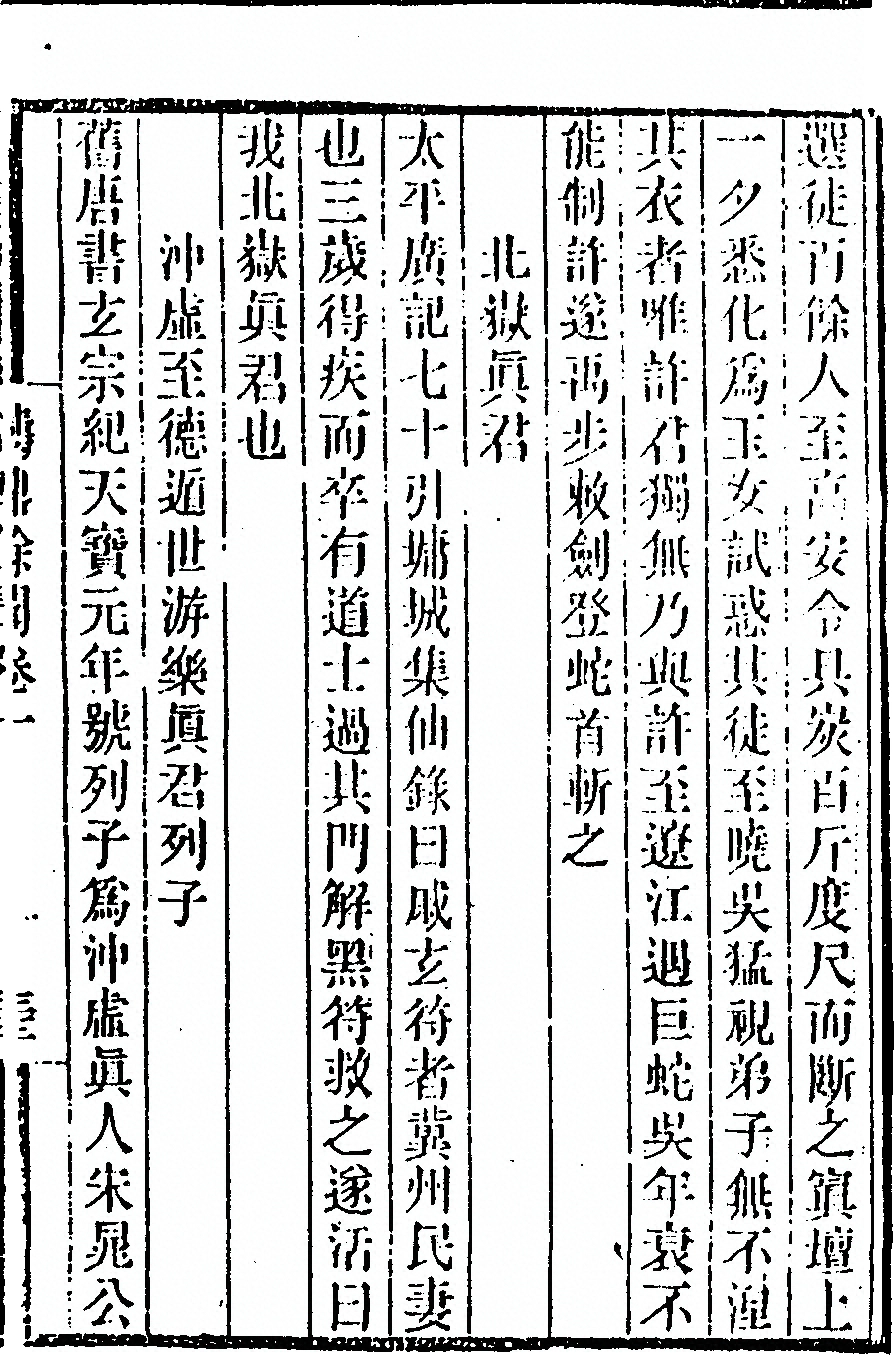 選徒百餘人至高安令具炭百斤度尺而斷之寘壇上
一夕悉化爲玉女試惑其徒至曉吳猛視弟子無不涅
其衣者唯許君獨無乃與許至遼江遇巨蛇吳年衰不
能制許遂禹步敕劍登蛇首斬之
北嶽眞君
太平廣記七十引墉城集仙錄曰戚玄符者冀州民妻
也三歲得疾而卒有道士過其門解黑符救之遂活曰
我北嶽眞君也
沖虛至德遁世游樂眞君列子
舊唐書玄宗紀天寶元年號列子爲沖虛眞人朱晁公
餘聞卷一